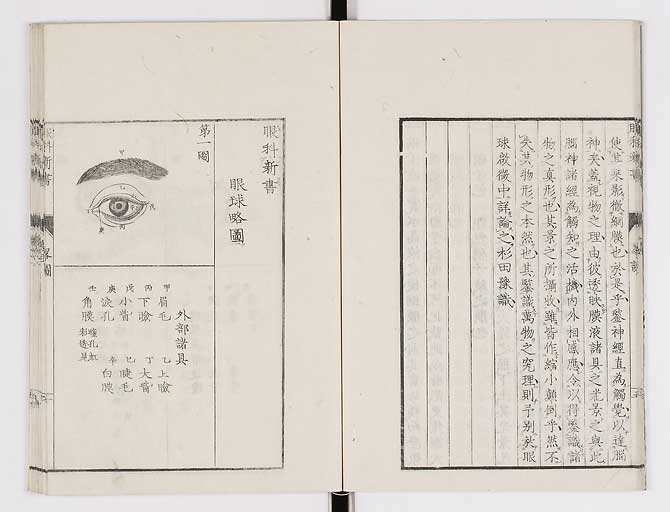 使其采影徹網膜也於是乎鑒神經直為觸覺以達腦
神矣蓋視物之理由彼透眼膜液諸具之光景之與此
腦神諸經為觸知之活機內外相感應令以得鑒識諸
物之真形也其景之所攝收雖皆作縮小顛倒乎然不
失其物形之本然也其鑒識萬物之究理則予別矣眼
球啟微中詳論之杉田豫識
眼科新書
眼球略圖
第一圖
甲
外部諸具
甲眉毛 乙上瞼
丙下瞼 丁大眥
戊小眥 己睫毛
庚淚孔 辛白膜
壬角膜
眼科新書